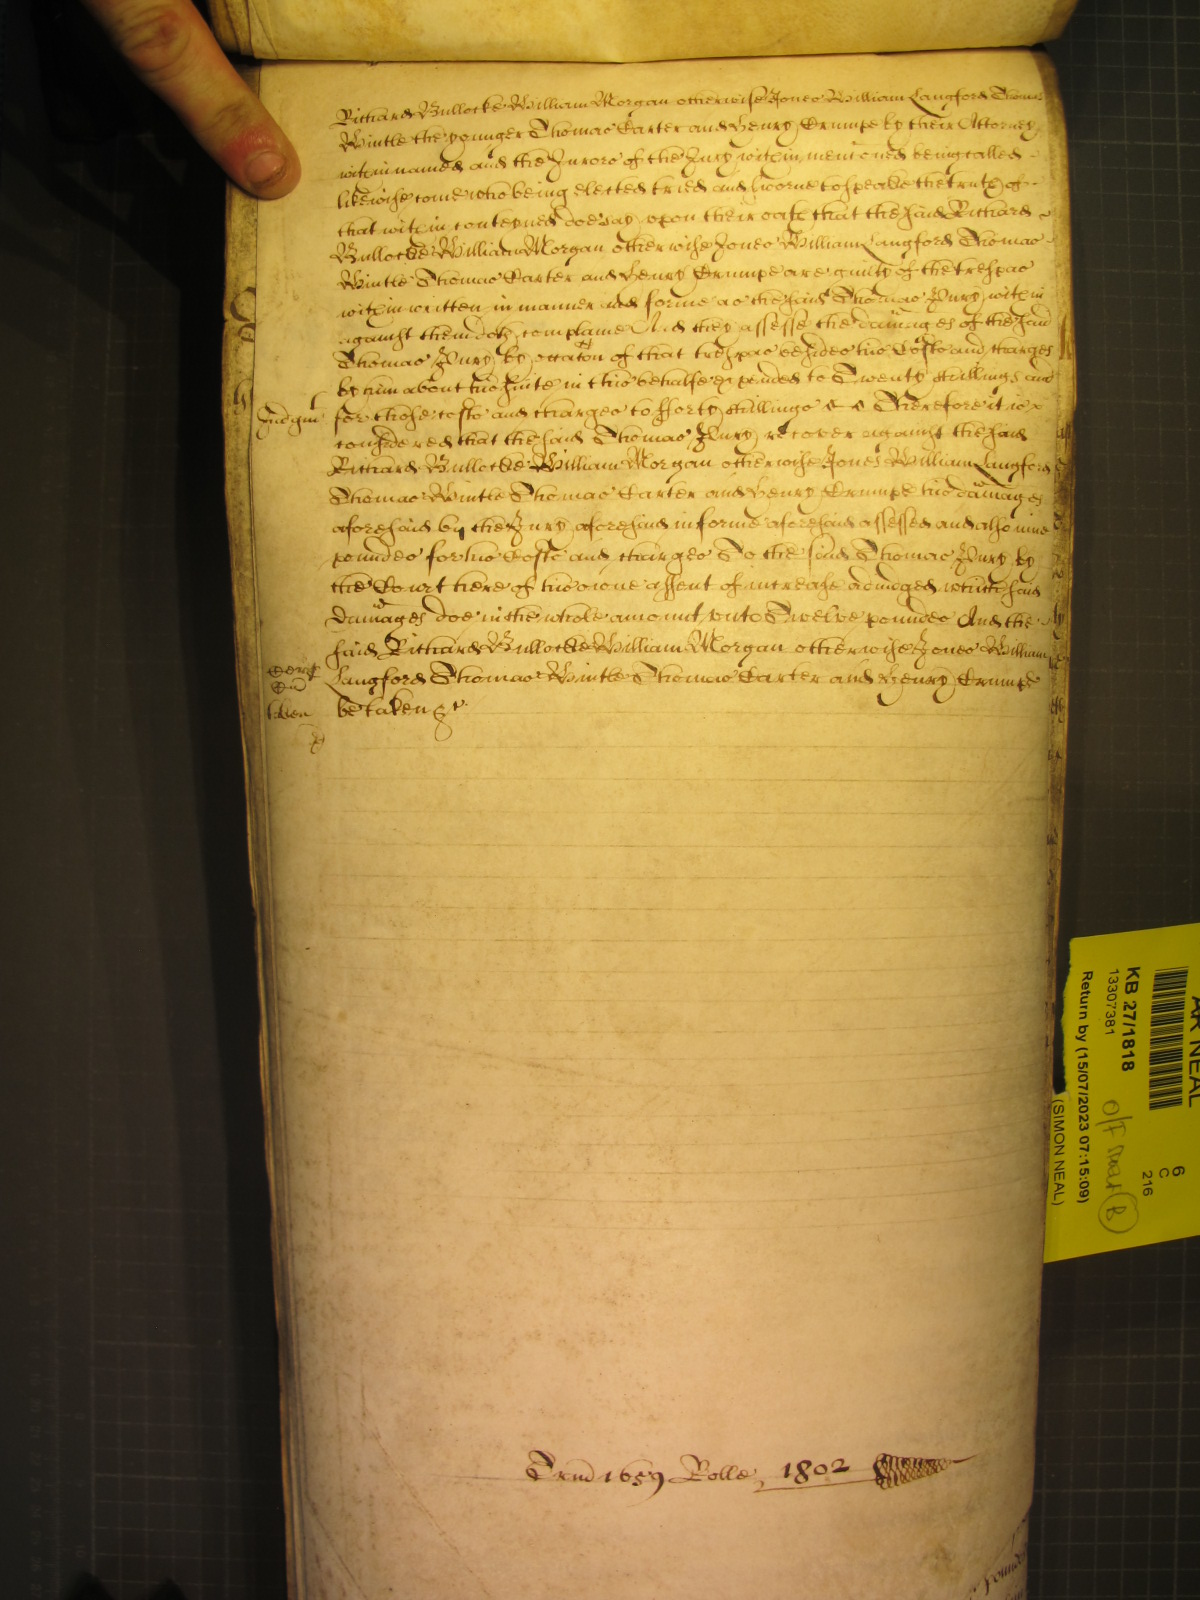 Richard Bullocke William Morgan otherwise Jones William Langford Thomas
Wintle the younger Thomas Carter and Henry Crumpe by their Attorney
within named and the Jurors of the Jury within menconed being called
likewise come who being elected tried and sworne to speake the truth of
that within conteyned doe say upon their oath that the said Richard
Bullocke William Morgan otherwise Jones William Langford Thomas
Wintle Thomas Carter and Henry Crumpe are guilty of the trespas
within written in manner and forme as the said Thomas Pury within
against them doth complaine And they assesse the damages of the said
Thomas Pury by occacon of that trespas besides his Costs and charges
by him about his suite in this behalfe expended to Twenty shillings and
Judgmt
for those costs and charges to fforty shillings Therefore it is
considered that the said Thomas Pury recover against the said
Richard Bullocke William Morgan otherwise Jones William Langford
Thomas Wintle Thomas Carter and Henry Crumpe his damages
aforesaid by the Jury aforesaid in forme aforesaid assessed and also nine
poundes for his Costs and charges To the said Thomas Pury by
the Court here of his owne assent of increase adiudged which said
damages doe in the whole amount unto Twelve poundes And the
said Richard Bullocke William Morgan otherwise Jones William
Langford Thomas Wintle Thomas Carter and Henry Crumpe
taken
be taken &c
Trin 1659 Rolle 1802
AR NEAL
KB 27/1818
13307381
Return by (15/07/2023 07:15:09)
(SIMON NEAL)
6
C
216
B